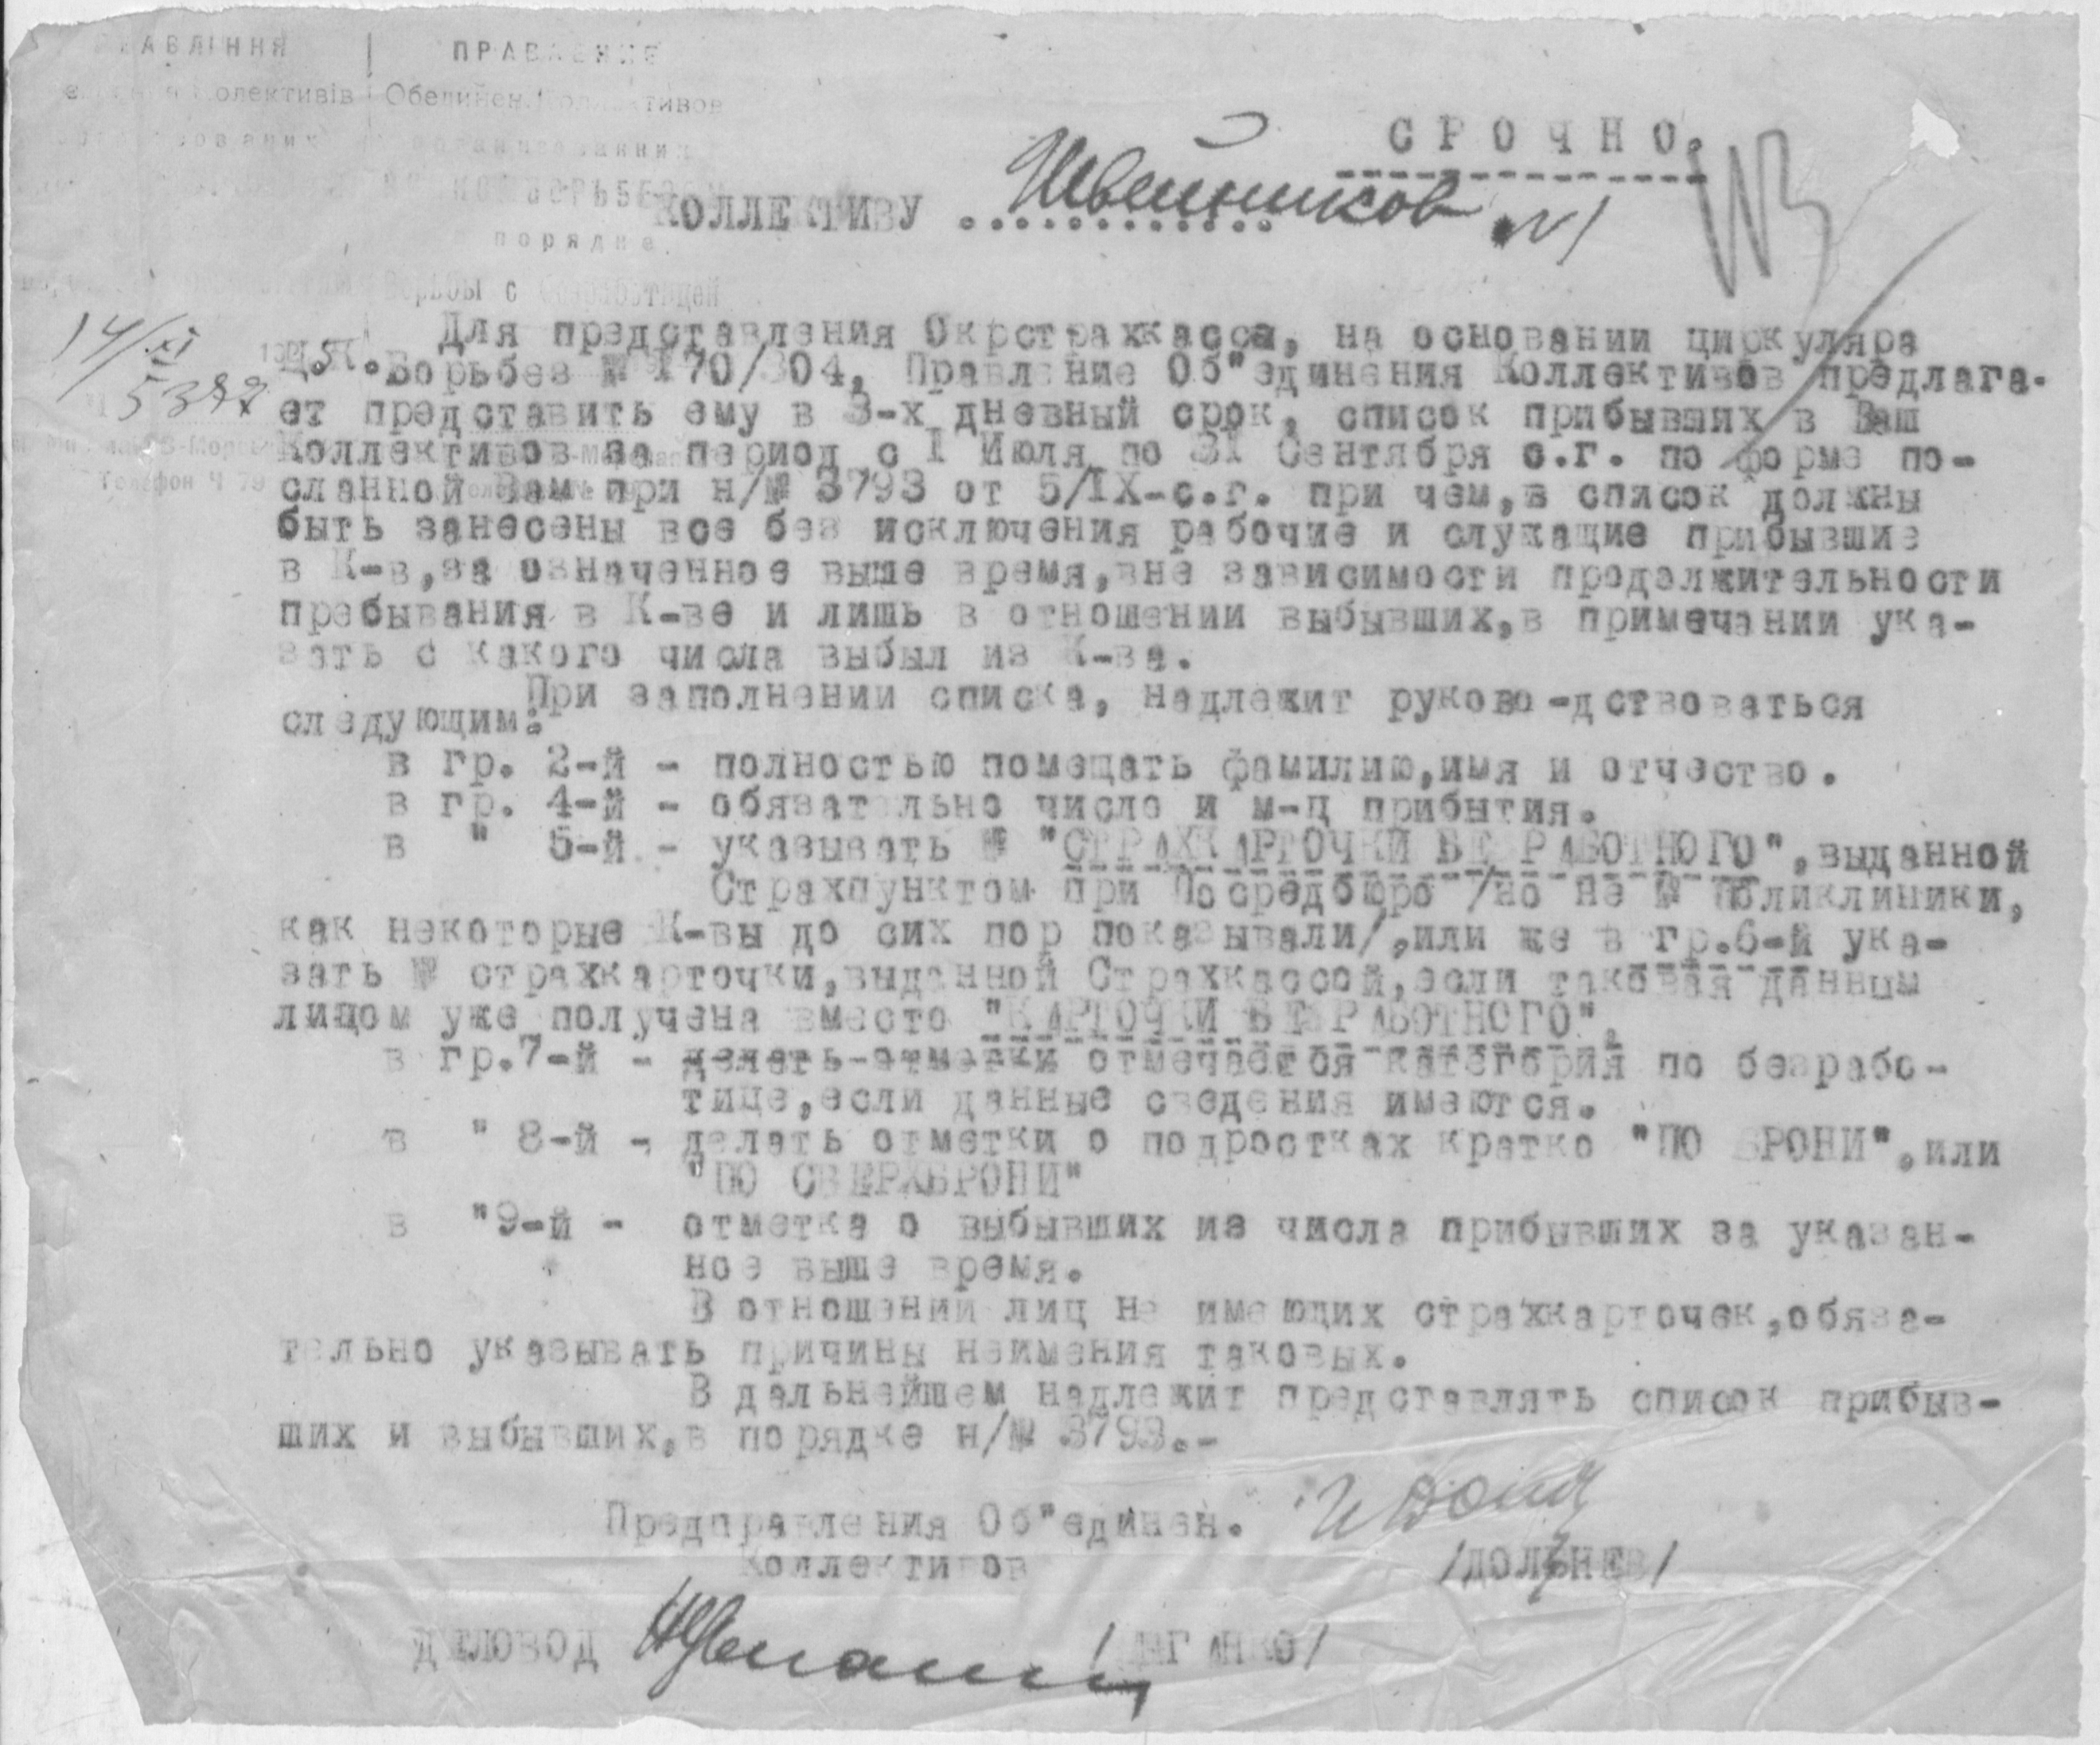 ПРАВЛЕНИЕ
Колективів
Обединен. Коллективов
КОМБОРЬБЕЗ
порядке.
Борьбы с безработицей
СРОЧНО.
КОЛЛЕКТИВУ ............ Швейников №1
14/XI
Для представления Окрстрахкасса, на основании циркуляра
Ц.П. Борьбез № 170/304, Правление Об"единения Коллективов предлага-
ет представить ему в 3-х дневный срок, список прибывших в Ваш
Коллективов за период с I Июля по 31 Сентября с.г. по форме по-
сланной Вам при н/№ 3793 от 5/IX-с.г. при чем,в список должны
быть занесены все без исключения рабочие и служащие прибывшие
в К-в,за означенное выше время,вне зависимости продолжительности
пребывания в К-ве и лишь в отношении выбывших,в примечании ука-
зать с какого числа выбыл из К-ва.
При заполнении списка, надлежит руково-дствоваться
следующим:
в гр. 2-й - полностью помещать фамилию,имя и отчество.
в гр. 4-й - обязательно число и м-ц прибытия.
в " 5-й - указывать № "СТРАХКАРТОЧКИ БЕЗРАБОТНОГО",выданной
Страхпунктом при Посредбюро /но не № Поликлиники,
как некоторые К-вы до сих пор показывали/,или же в гр.6-й ука-
зать № страхкарточки,выданной Страхкассой,если таковая данным
лицом уже получена вместо "КАРТОЧКИ БЕЗРАБОТНОГО",
в гр.7-й - делать отметки отмечается категория по безрабо-
тице,если данные сведения имеются.
в " 8-й - делать отметки о подростках кратко "ПО БРОНИ",или
"ПО СВЕРХБРОНИ"
в "9-й - отметка о выбывших из числа прибывших за указан-
ное выше время.
В отношении лиц не имеющих страхкарточек,обяза-
тельно указывать причины неимения таковых.
В дальнейшем надлежит представлять список прибыв-
ших и выбывших,в порядке н/№ 3793.-
Предправления Об"единен.
Коллективов
/ДОЛЬНЕВ/
ДЕЛОВОД